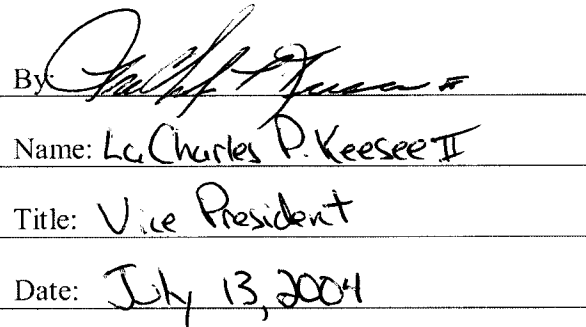 By:
Name: LaCharles P. Keesee II
Title: Vice President
Date: July 13, 2004